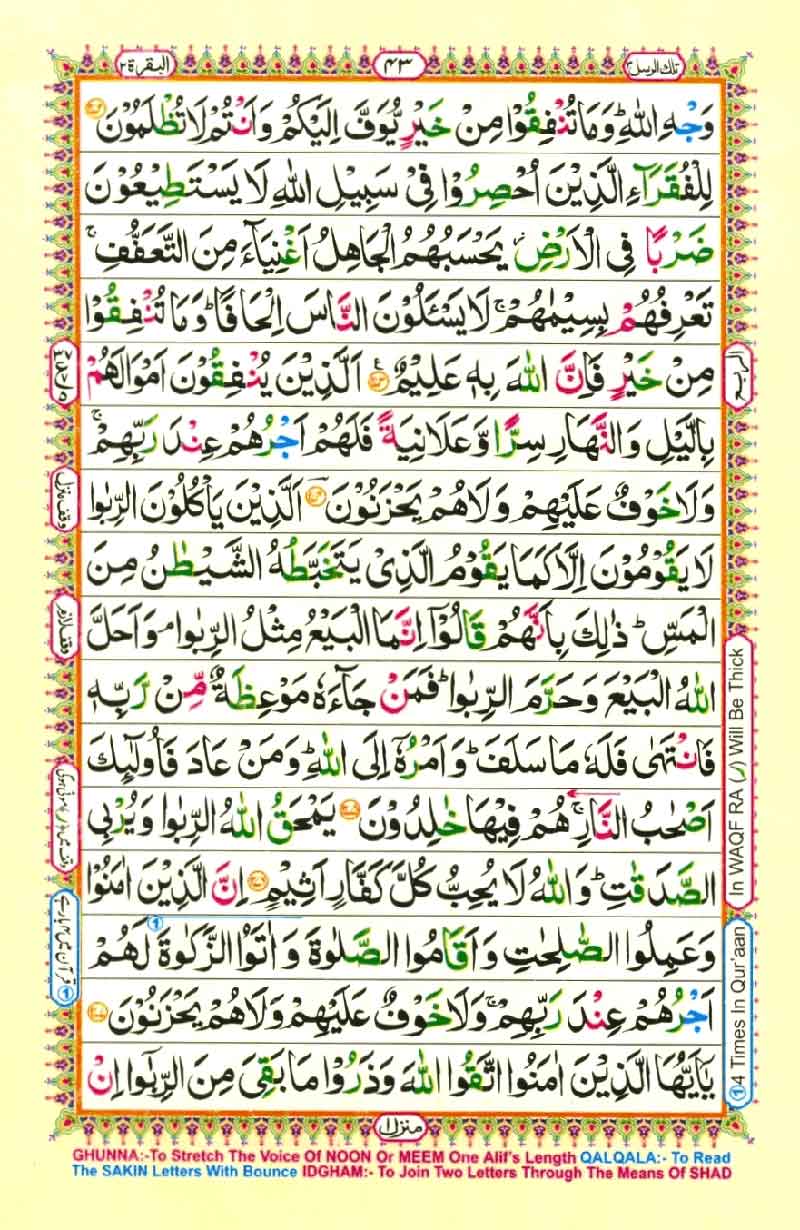 تلك الرسل ٣
٤٣
البقرة ٢
وَجْهِ اللّٰهِ ؕ وَمَا تُنْفِقُوْا مِنْ خَيْرٍ يُّوَفَّ اِلَيْكُمْ وَاَنْتُمْ لَا تُظْلَمُوْنَ ۟
لِلْفُقَرَآءِ الَّذِيْنَ اُحْصِرُوْا فِيْ سَبِيْلِ اللّٰهِ لَا يَسْتَطِيْعُوْنَ
ضَرْبًا فِي الْاَرْضِ ؗ يَحْسَبُهُمُ الْجَاهِلُ اَغْنِيَآءَ مِنَ التَّعَفُّفِ ۚ
تَعْرِفُهُمْ بِسِيْمٰىهُمْ ۚ لَا يَسْـَٔلُوْنَ النَّاسَ اِلْحَافًا ؕ وَمَا تُنْفِقُوْا
مِنْ خَيْرٍ فَاِنَّ اللّٰهَ بِهٖ عَلِيْمٌ ۟ اَلَّذِيْنَ يُنْفِقُوْنَ اَمْوَالَهُمْ
بِالَّيْلِ وَالنَّهَارِ سِرًّا وَّعَلَانِيَةً فَلَهُمْ اَجْرُهُمْ عِنْدَ رَبِّهِمْ ۚ
وَلَا خَوْفٌ عَلَيْهِمْ وَلَا هُمْ يَحْزَنُوْنَ ۟ اَلَّذِيْنَ يَاْكُلُوْنَ الرِّبٰوا
لَا يَقُوْمُوْنَ اِلَّا كَمَا يَقُوْمُ الَّذِيْ يَتَخَبَّطُهُ الشَّيْطٰنُ مِنَ
الْمَسِّ ؕ ذٰلِكَ بِاَنَّهُمْ قَالُوْۤا اِنَّمَا الْبَيْعُ مِثْلُ الرِّبٰوا ۘ وَاَحَلَّ
اللّٰهُ الْبَيْعَ وَحَرَّمَ الرِّبٰوا ؕ فَمَنْ جَآءَهٗ مَوْعِظَةٌ مِّنْ رَّبِّهٖ
فَانْتَهٰى فَلَهٗ مَا سَلَفَ ؕ وَاَمْرُهٗۤ اِلَى اللّٰهِ ؕ وَمَنْ عَادَ فَاُولٰٓئِكَ
اَصْحٰبُ النَّارِ ۚ هُمْ فِيْهَا خٰلِدُوْنَ ۟ يَمْحَقُ اللّٰهُ الرِّبٰوا وَيُرْبِي
الصَّدَقٰتِ ؕ وَاللّٰهُ لَا يُحِبُّ كُلَّ كَفَّارٍ اَثِيْمٍ ۟ اِنَّ الَّذِيْنَ اٰمَنُوْا
وَعَمِلُوا الصّٰلِحٰتِ وَاَقَامُوا الصَّلٰوةَ وَاٰتَوُا الزَّكٰوةَ لَهُمْ
اَجْرُهُمْ عِنْدَ رَبِّهِمْ ۚ وَلَا خَوْفٌ عَلَيْهِمْ وَلَا هُمْ يَحْزَنُوْنَ ۟
يٰۤاَيُّهَا الَّذِيْنَ اٰمَنُوا اتَّقُوا اللّٰهَ وَذَرُوْا مَا بَقِيَ مِنَ الرِّبٰۤوا اِنْ
الربع
In WAQF RA (ر) Will Be Thick
① 4 Times In Qur'aan
وقف منزل
وقف لازم
منزل ١
GHUNNA:-To Stretch The Voice Of NOON Or MEEM One Alif's Length QALQALA:- To Read
The SAKIN Letters With Bounce IDGHAM:- To Join Two Letters Through The Means Of SHAD